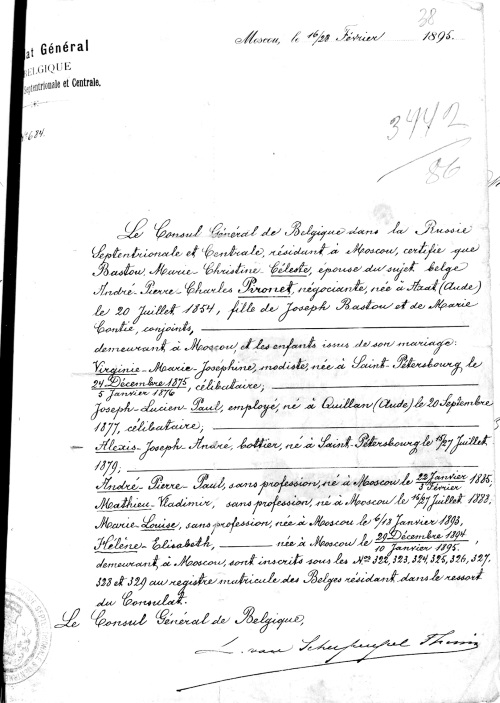 38
Moscou, le 16/28 Février 1895.
at Général
BELGIQUE
Septentrionale et Centrale.
No 684.
3442
86
Le Consul Général de Belgique dans la Russie
Septentrionale et Centrale, résidant à Moscou, certifie que
Bastou, Marie-Christine-Céleste, épouse du sujet belge
André-Pierre-Charles Pironet, négociante, née à Axat (Aude)
le 20 Juillet 1854, fille de Joseph Bastou et de Marie
Contié, conjoints,
demeurant à Moscou, et les enfants issus de son mariage:
Virginie-Marie-Josephine, modiste, née à Saint-Pétersbourg le
24 Décembre 1875 / 5 Janvier 1876, célibataire;
Joseph-Lucien-Paul, employé, né à Quillan (Aude) le 20 Septembre
1877, célibataire;
Alexis-Joseph-André, bottier, né à Saint-Pétersbourg le 15/27 Juillet
1879;
André-Pierre-Paul, sans profession, né à Moscou le 22 Janvier / 3 Février 1885,
Mathieu-Vladimir, sans profession, né à Moscou le 15/27 Juillet 1888,
Marie-Louise, sans profession, née à Moscou le 6/18 Janvier 1893,
Hélène-Elisabeth, née à Moscou le 29 Décembre 1894 / 10 Janvier 1895,
demeurant à Moscou, sont inscrits sous les Nos 322, 323, 324, 325, 326, 327,
328 et 329 au registre matricule des Belges résidant dans le ressort
du Consulat.
Le Consul Général de Belgique,
L. van